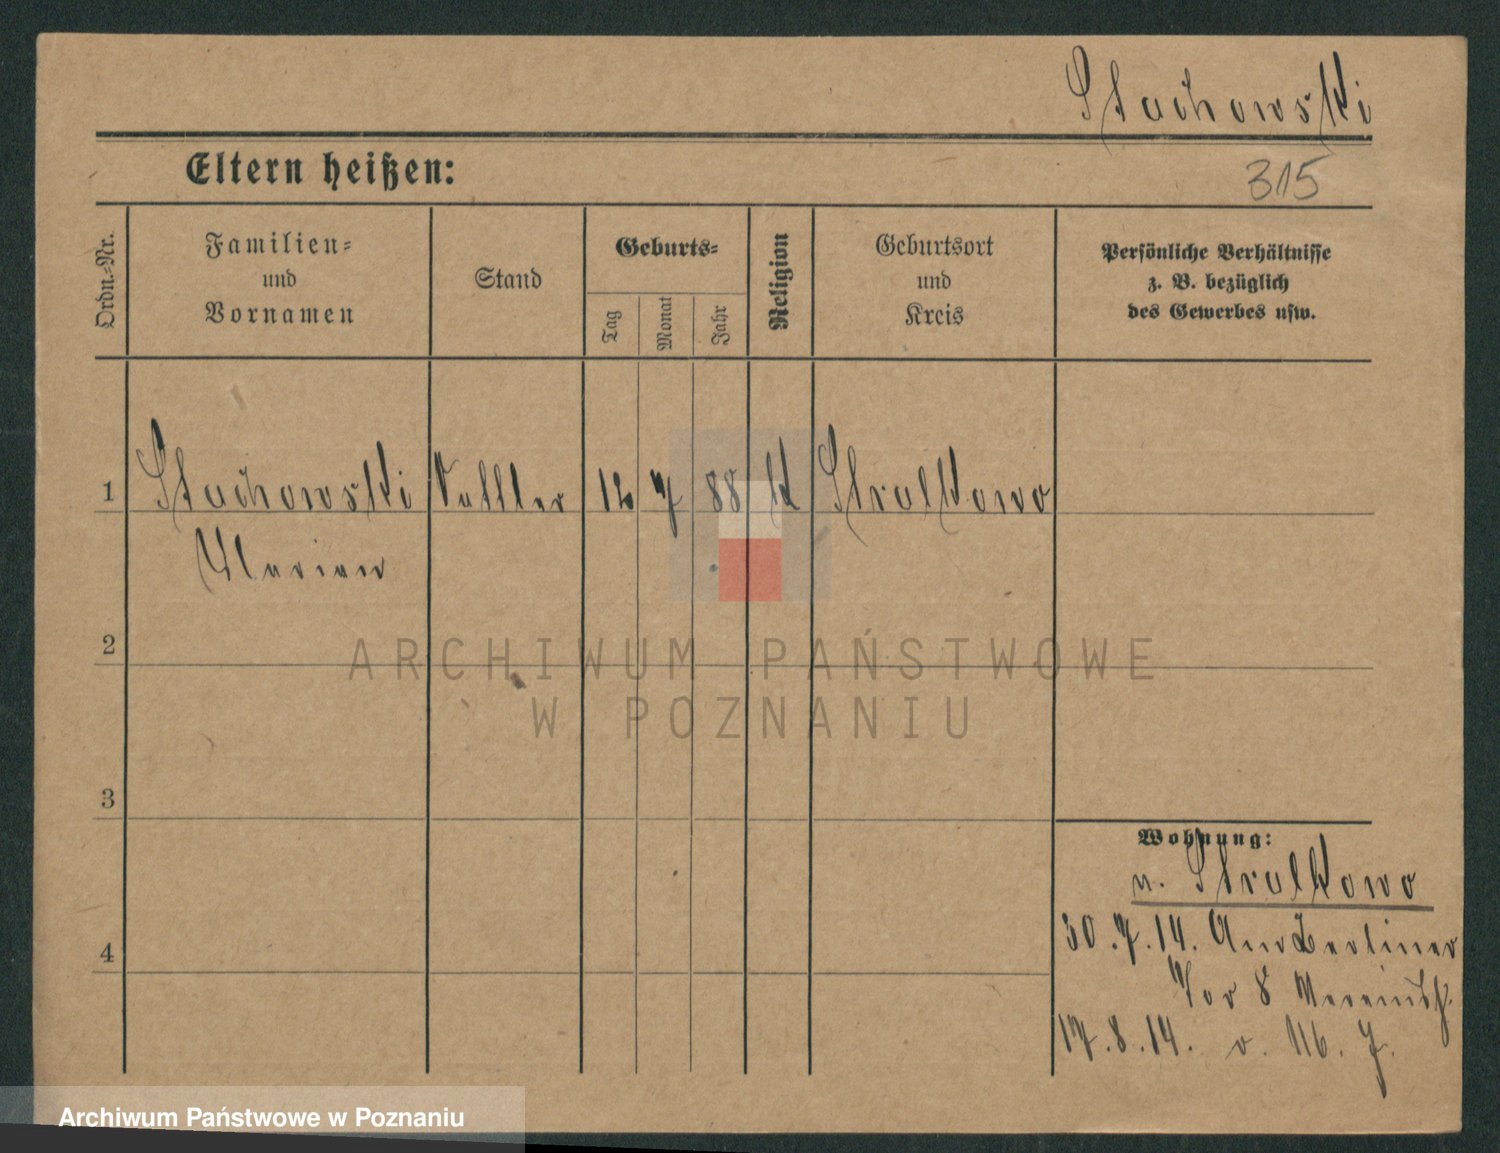 Stachowski
Eltern heißen:
315
Ordn.-Nr.
Familien-
und
Vornamen
Stand
Geburts-
Tag
Monat
Jahr
Religion
Geburtsort
und
Kreis
Persönliche Verhältnisse
z. B. bezüglich
des Gewerbes usw.
1 Stachowski Sattler 12 7 88 K Stralkowo
Marian
2
ARCHIWUM PAŃSTWOWE
W POZNANIU
3
Wohnung:
n. Stralkowo
4
30.7.14. Berliner
Tor 8
17.8.14. v. U6. J.
Archiwum Państwowe w Poznaniu